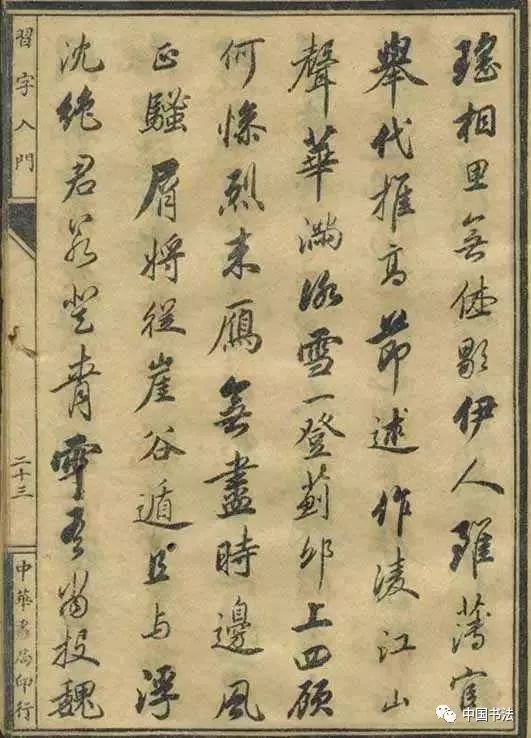 瑤相思無休歇伊人雖薄宦
舉代推高節述作凌江山
聲華滿冰雪一登薊邱上四顧
何慘烈來鴈無盡時邊風
正騷屑將從崖谷遁且与浮
沈絶君若登青雲吾當投魏
習字入門
二十三
中華書局印行
中国书法